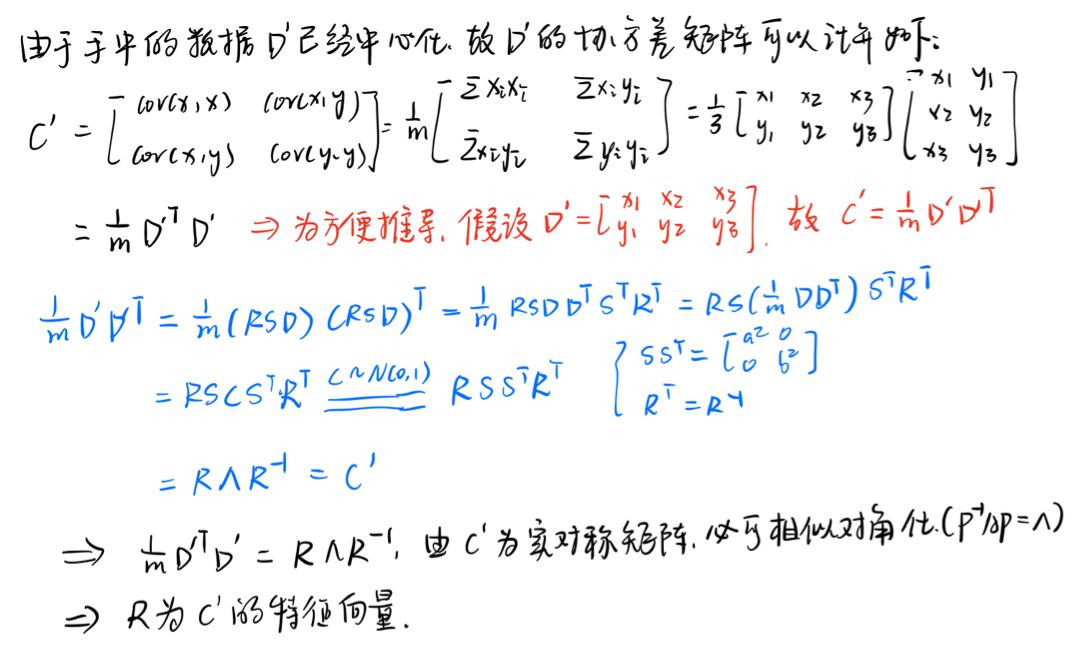 由于手中的数据D'已经中心化,故D'的协方差矩阵可以计算如下:
C' = [cov(x,x) cov(x,y) cov(x,y) cov(y,y)] = 1/m [Σxixi Σxiyi Σxiyi Σyiyi] = 1/3 [x1 x2 x3 y1 y2 y3] [x1 y1 x2 y2 x3 y3]
= 1/m D'ᵀD' ⇒ 为方便推导,假设D'=[x1 x2 x3 y1 y2 y3],故 C'=1/m D'D'ᵀ
1/m D'D'ᵀ = 1/m (RSD)(RSD)ᵀ = 1/m RSDDᵀSᵀRᵀ = RS(1/m DDᵀ)SᵀRᵀ
= RSCSᵀRᵀ C~N(0,1) = RSSᵀRᵀ { SSᵀ=[a² 0 0 b²]
Rᵀ=R⁻¹
= RΛR⁻¹ = C'
⇒ 1/m D'ᵀD' = RΛR⁻¹, 由C'为实对称矩阵,必可相似对角化.(P⁻¹AP=Λ)
⇒ R为C'的特征向量.